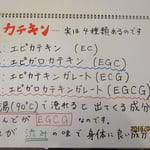 カテキン… 実は4種類あるのです
・エピカテキン (EC)
・エピガロカテキン (EGC)
・エピカテキンガレート (ECG)
・エピガロカテキンガレート (EGCG)
湯(90℃)で淹れると出てくる成分
んどが EGCG なのです。
が 渋みの味で身体に良い成分